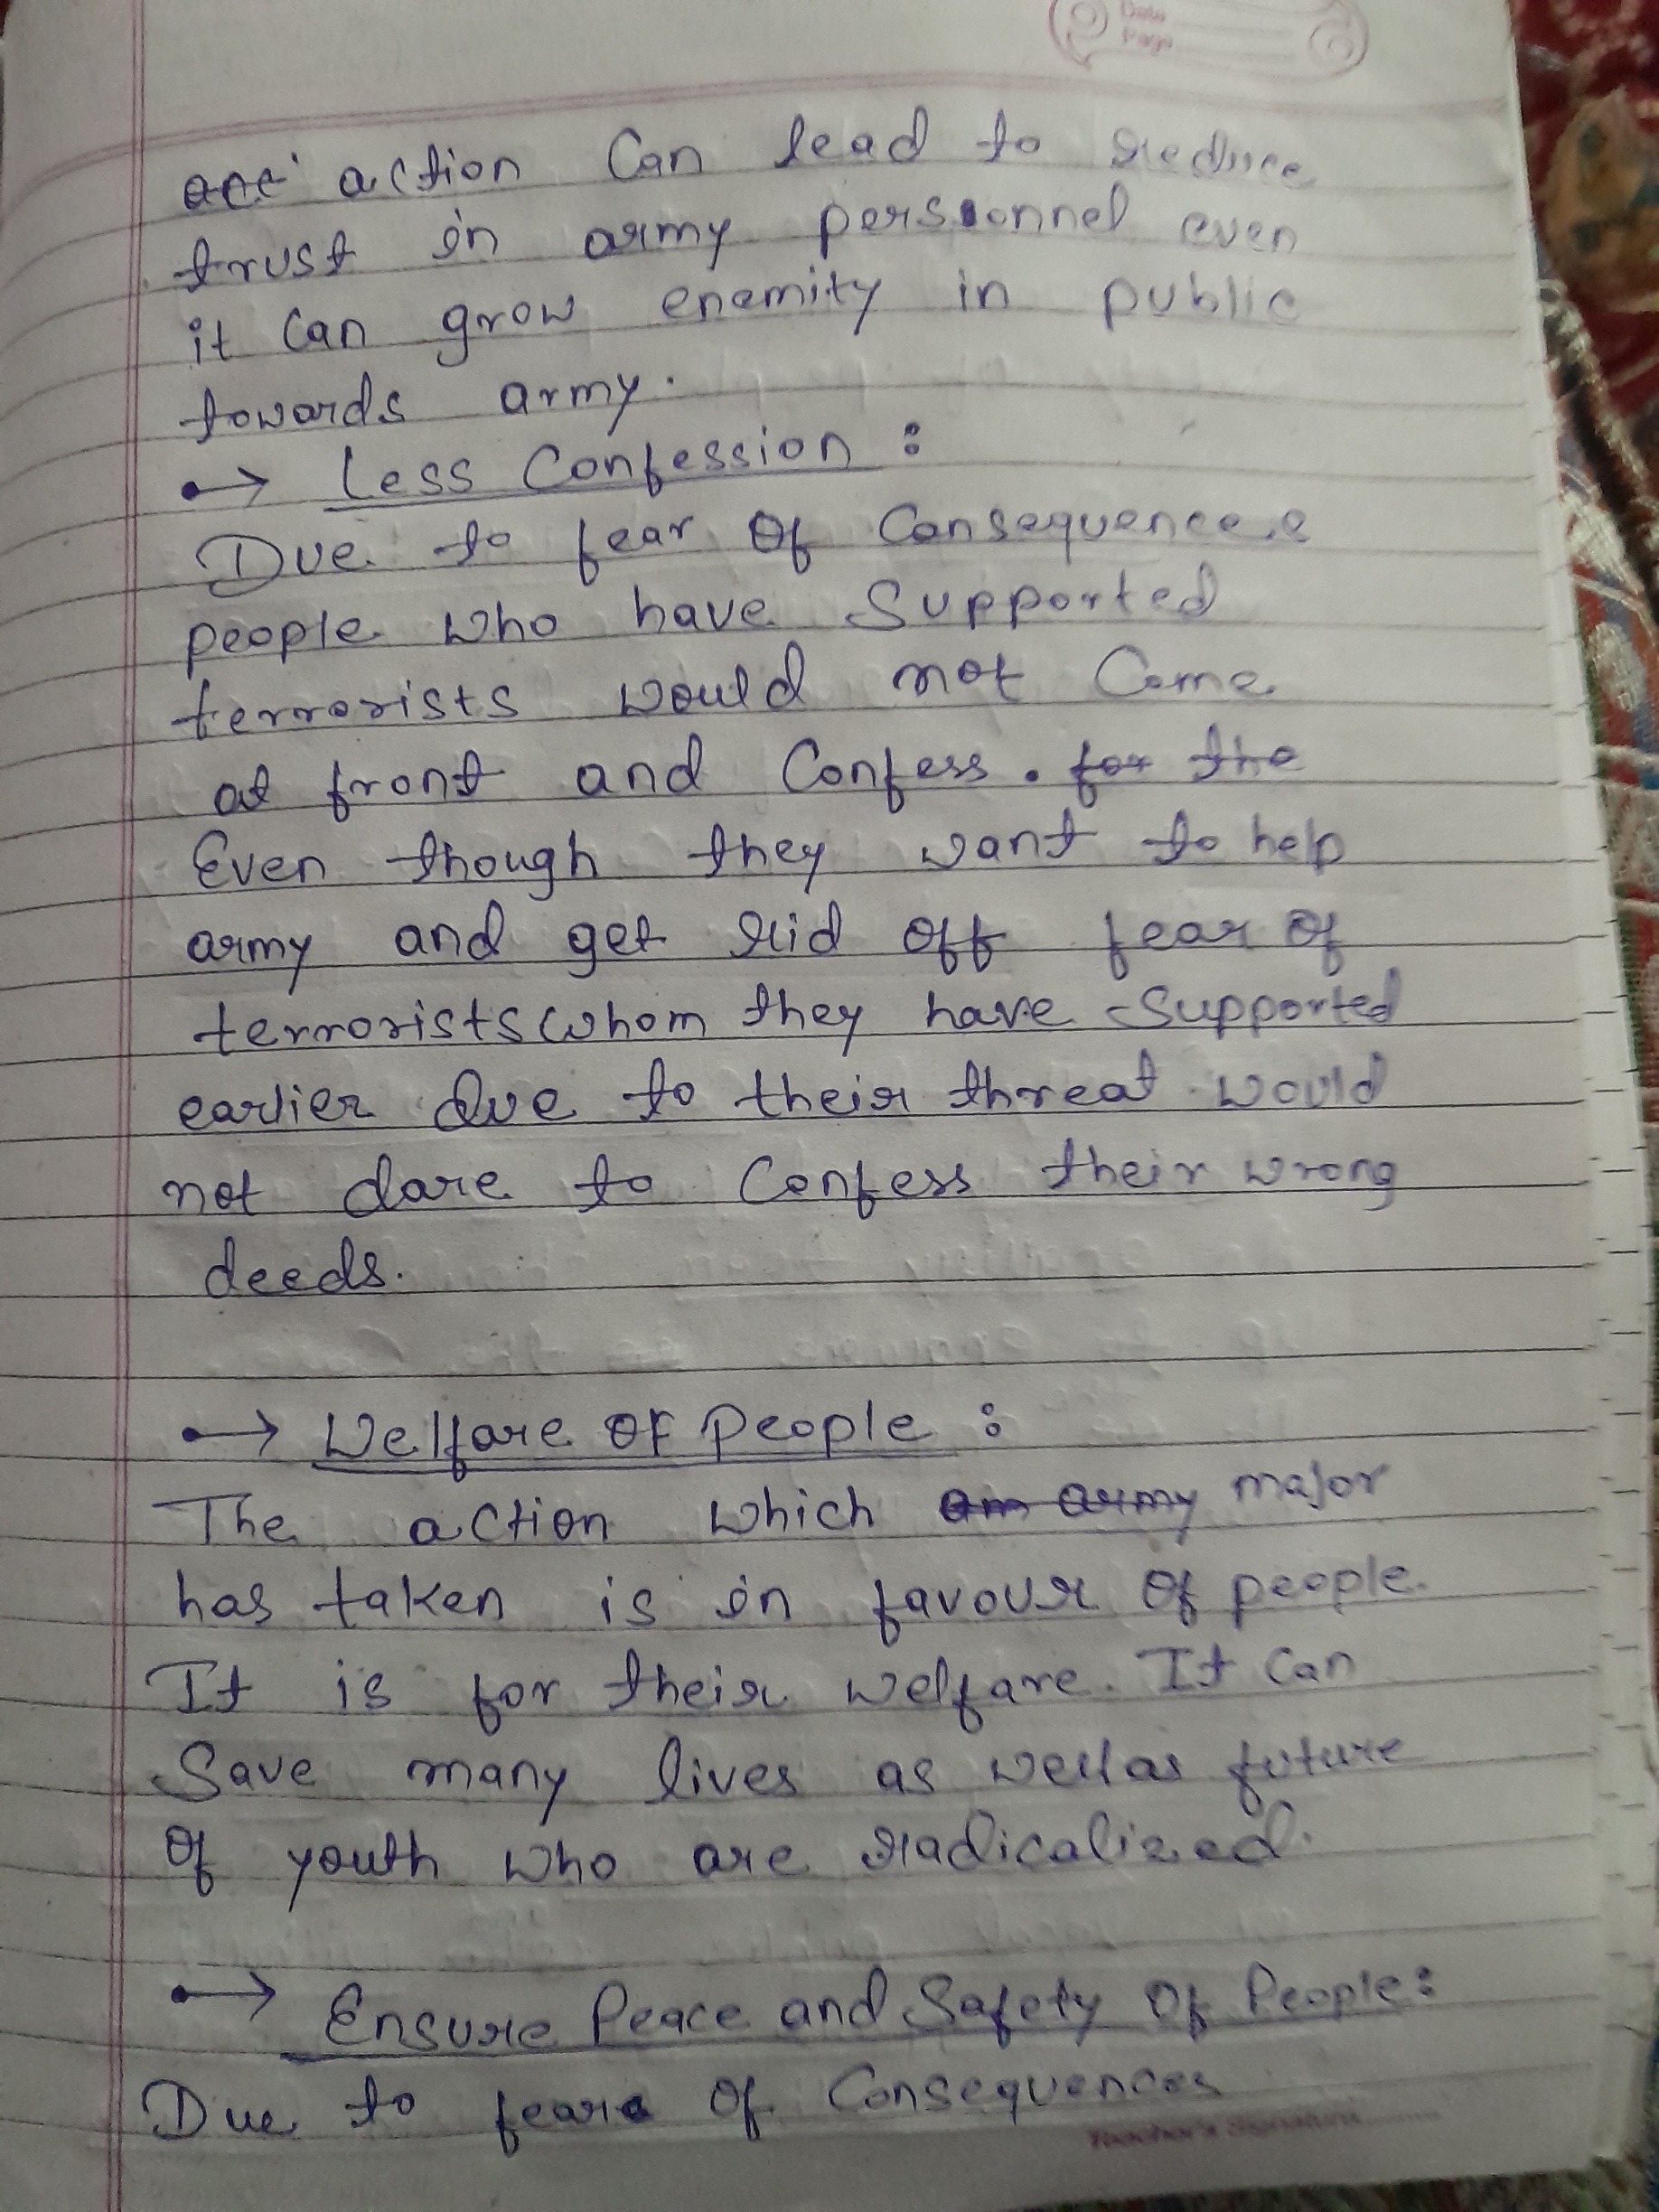 Date
Page
act action Can lead to reduce
trust in army personnel even
it can grow enemity in public
towards army.
→ Less Confession :
Due to fear of Consequence
people who have Supported
terrorists would not Come
at front and Confess . for the
Even though they want to help
army and get rid off fear of
terrorists whom they have Supported
earlier due to their threat would
not dare to Confess their wrong
deeds.
→ Welfare of People :
The action which an army major
has taken is in favour of people.
It is for their welfare. It Can
Save many lives as well as future
Of youth who are radicalized.
→ Ensure Peace and Safety Of People:
Due to fear Of Consequences
Teacher's Signature